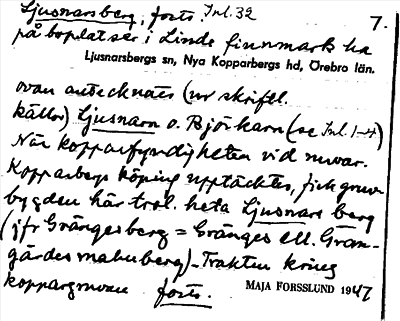 Ljusnarsberg, forts. Inl. 32
7.
på boplatser i Linde finnmark ha
Ljusnarsbergs sn, Nya Kopparbergs hd, Örebro län.
ovan antecknats (ur skriftl.
källor) Ljusnarn o. Björkarn (se Inl. 1-4)
När kopparfyndigheten vid nuvar.
Kopparbergs köping upptäcktes, fick gruv-
bygden här trol. heta Ljusnars berg
(jfr Grängesberg = Gränges ell. Gran-
gärdes malmberg) - Trakten kring
koppargruvan forts.
MAJA FORSSLUND 1947